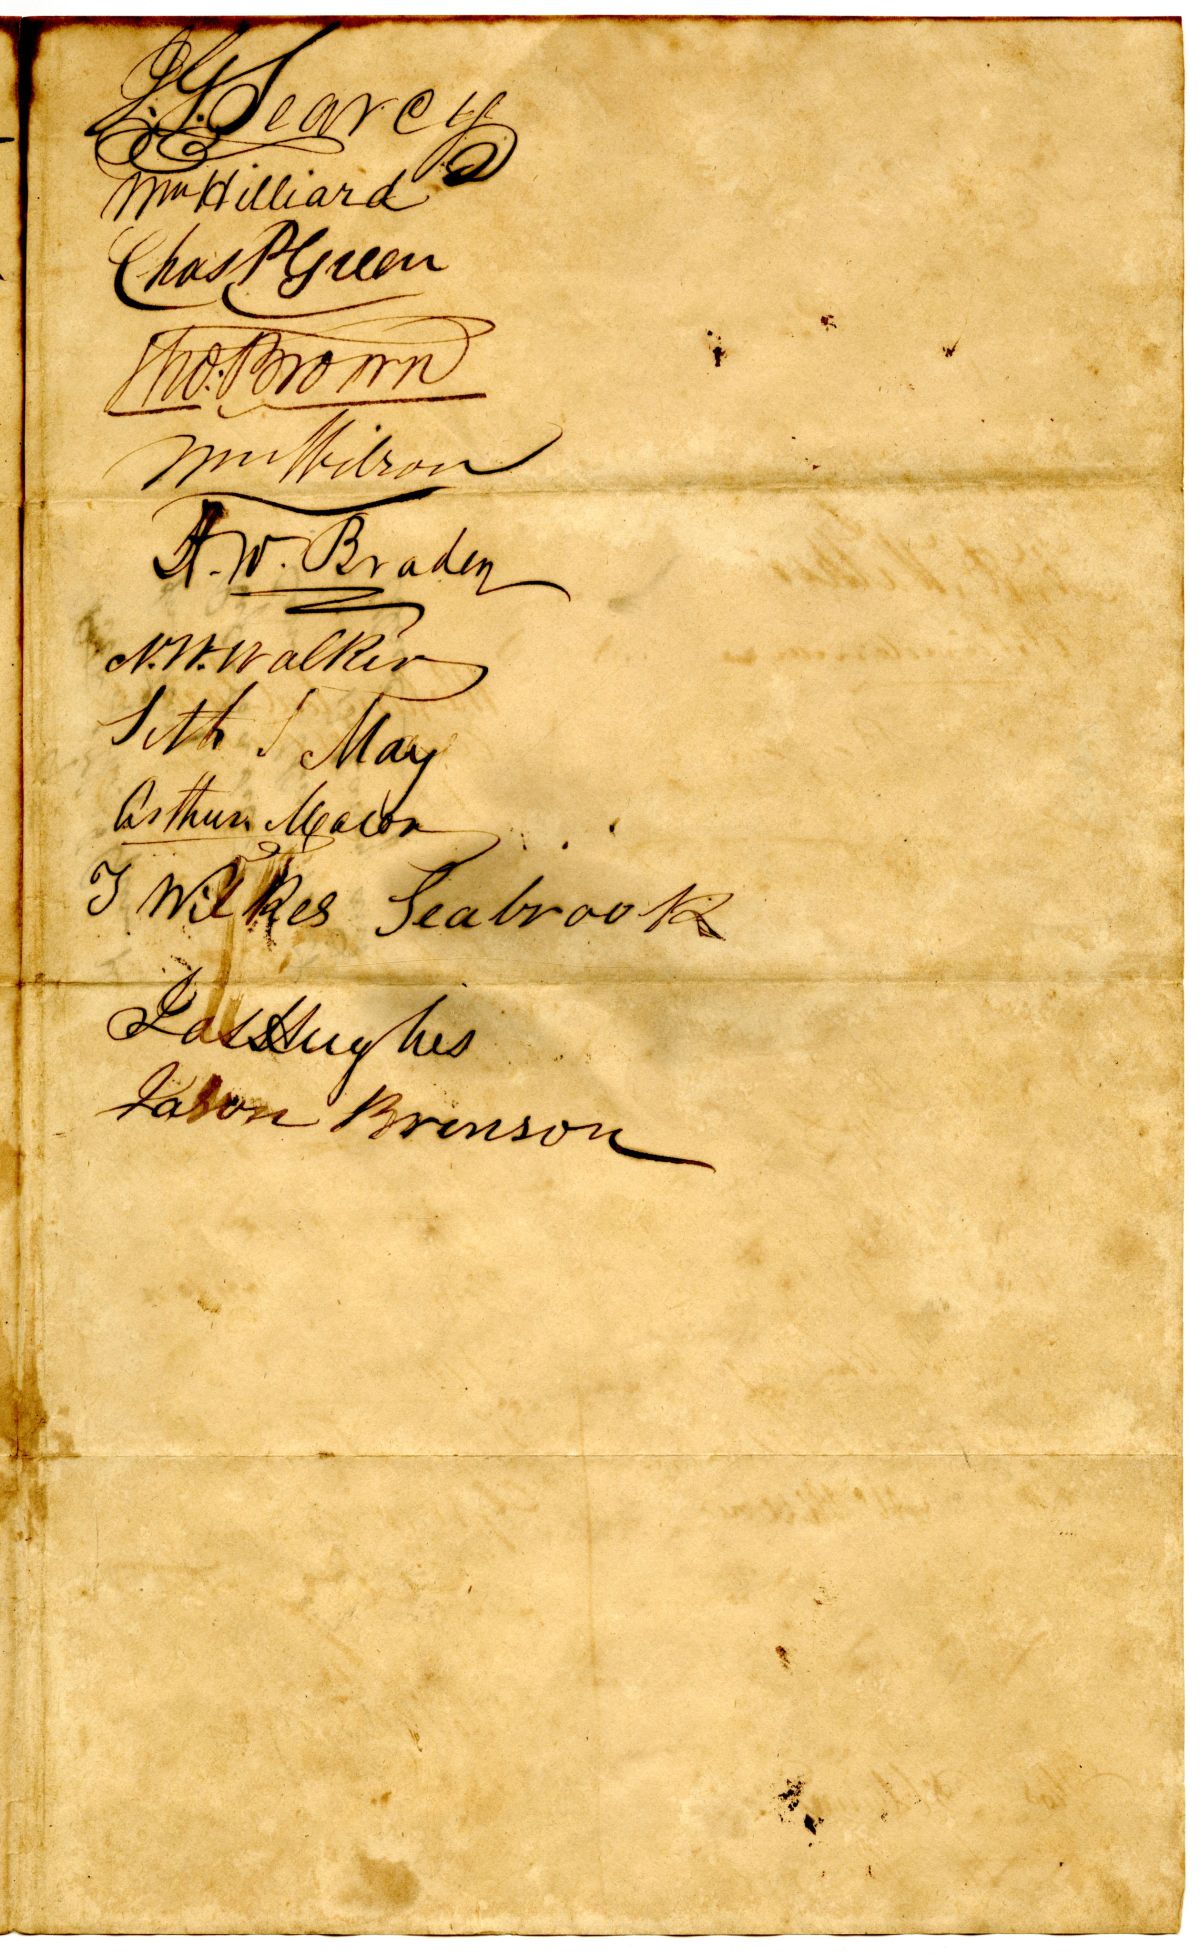 I. G. Searcy
Wm Hilliard
Chas P Green
Tho. Brown
Wm Wilson
A. W. Braden
N. W. Walker
Seth J May
Arthur Macon
T Wilkes Seabrook
Jas Hughes
Jason Brinson